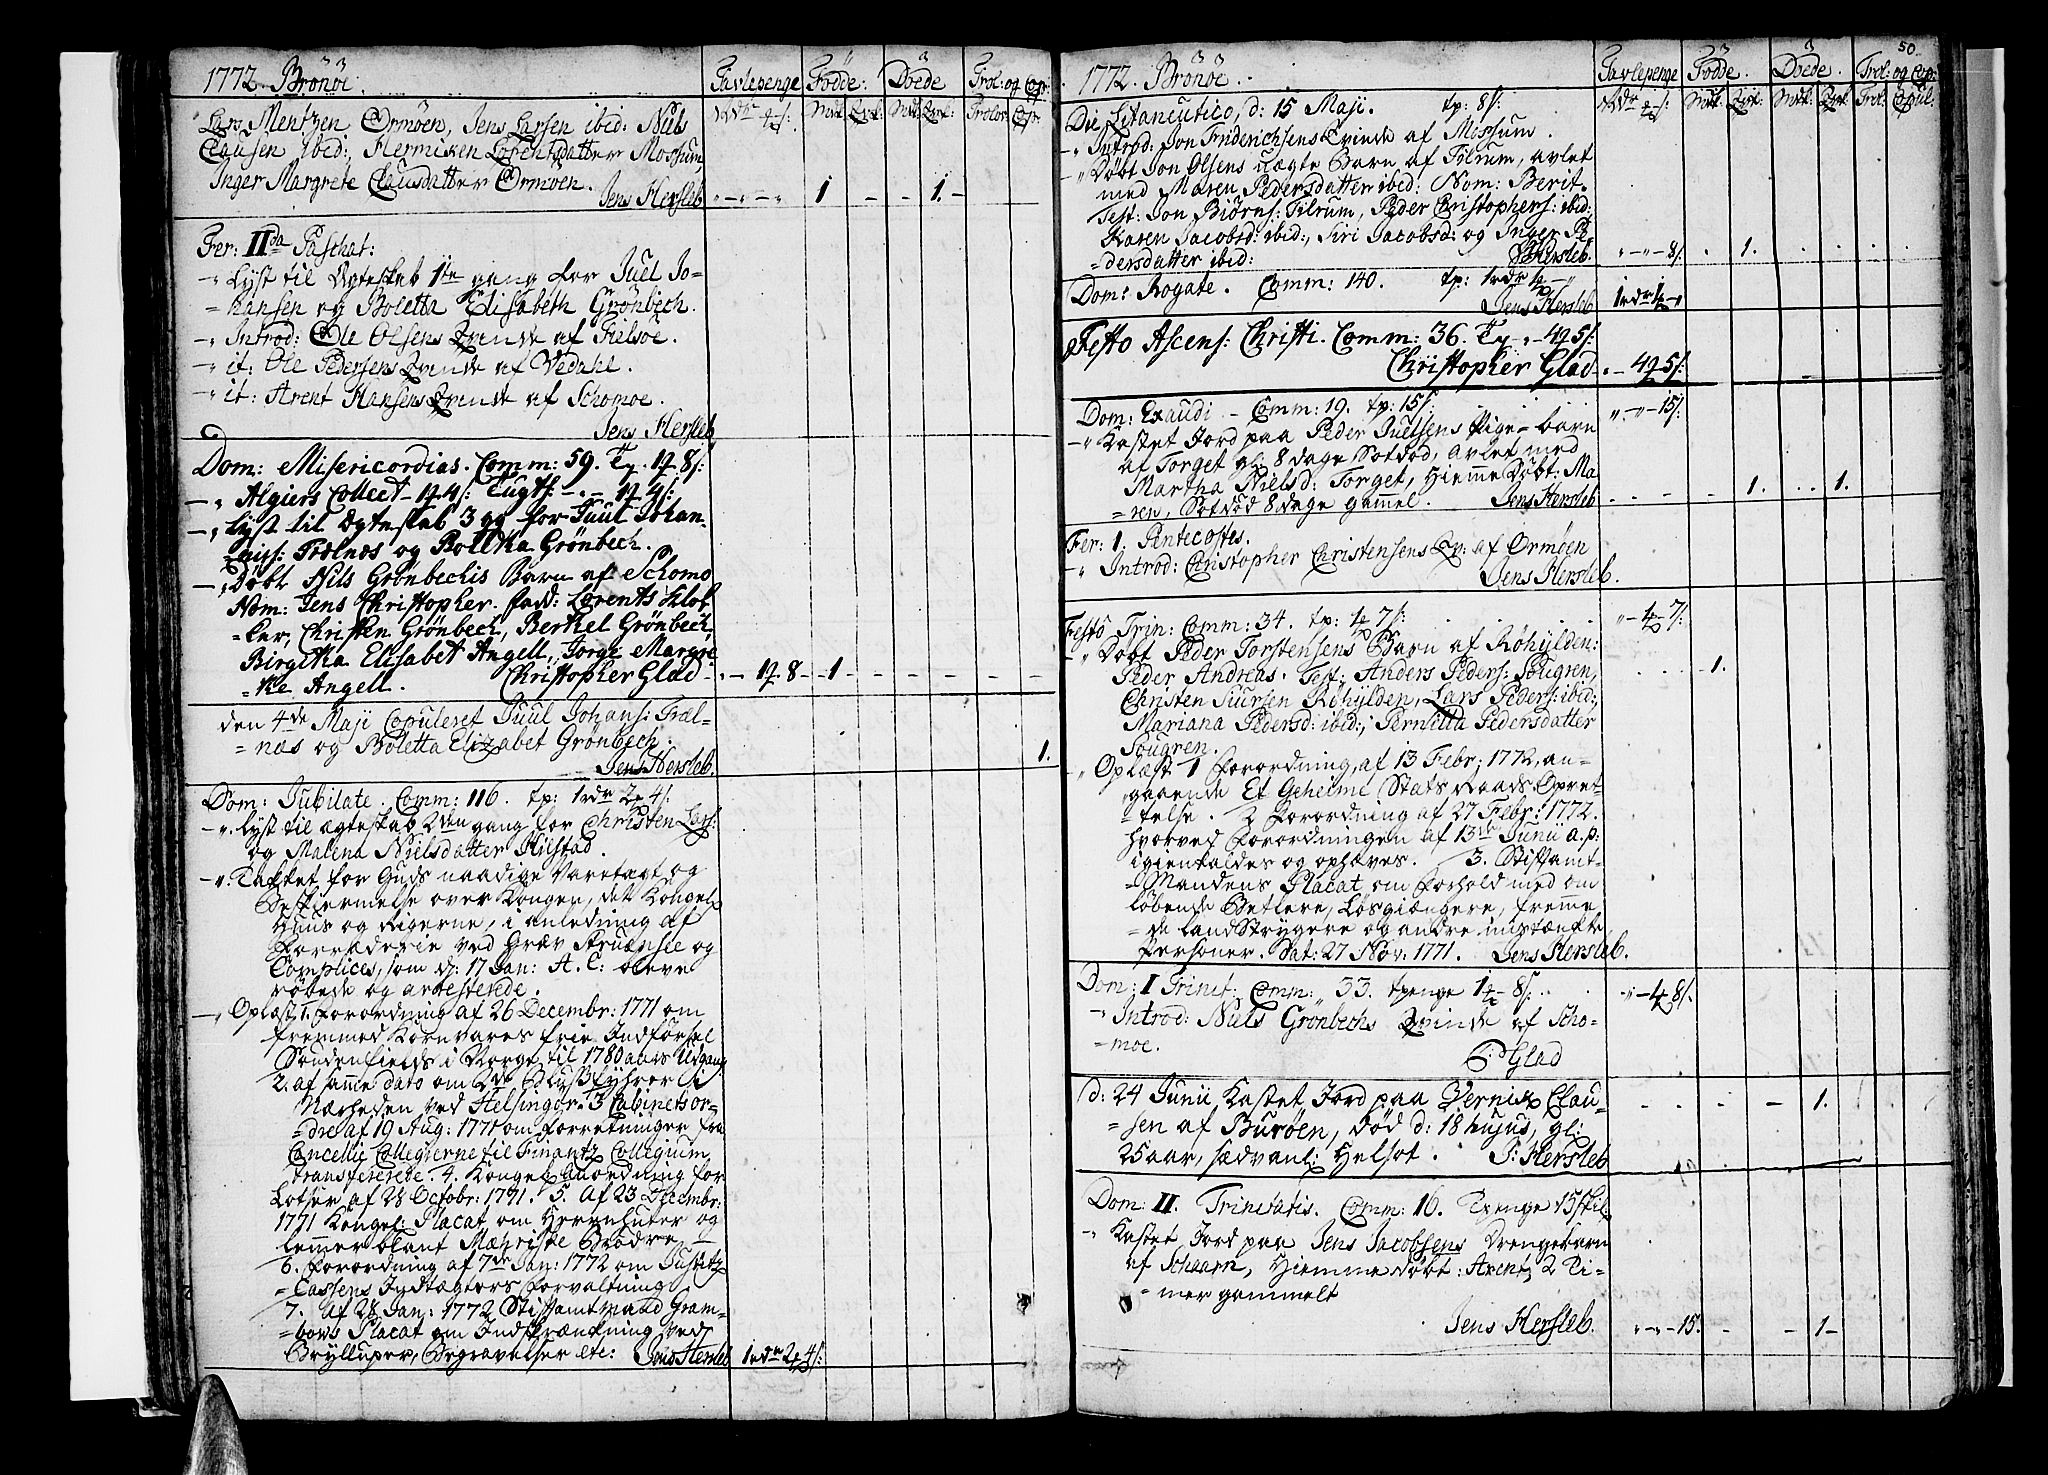 1772. Brönöe.
Tavlepenge Födde: Döede Trol: og Cop:
Lars Mentzen Ormöen, Jens Larsen ibid: Niels
Clausen ibid:, Hermiken Lorentsdatter Mossum,
Inger Margrete Clausdatter Ormöen.
Jens Hersleb 1 - - 1.
Fer: IIda Paschat:
-" Lyst til Ægteskab 1te gang for Juel Jo-
=hansen og Boletta Elisabeth Grönbech.
-" Introd: Ole Olsens Qvinde af
-" it: Ole Pedersens Qvinde af Vedahl.
-" it: Arent Hansens Qvinde af Schomoe.
Jens Hersleb
Dom: Misericordias. Comm: 59. Tp. 1 8/:
-" Algiers Collect 4/: Tugth: 4/:
-" Lyst til Ægteskab 3 gg for Juul Johan-
Trælnæs og Boletta Grönbech.
-" Döbt Nils Grönbechis Barn af Schomo
Nom: Jens Christopher. Fadd: Lorents Klöf
=ker, Christen Grönbech, Berthel Grönbech,
Birgitta Elisabet Angell, Jorge Margre
=the Angell. Christopher Glad - 1 8 - 1 -
den 4de Maji Copuleret Juul Johans: Træl-
=næs og Boletta Elizabet Grönbech.
Jens Hersleb. 1.
Dom: Jubilate. Comm: 116. tp: 1 rdr 2 4/:
-". Lyst til ægteskab 2den gang for Christen Lars:
og Malena Nielsdatter Hilstad.
-". Takket for Guds naadige Varetagt og
Beskiermelse over Kongen, det Kongel:
Huus og Rigerne, i anledning af
Forræderie ved Grev Struensee og
Complices, som d: 17 Jan: A. C: bleve
röbede og arresterede.
-" Oplæst 1. Forordning af 26 Decembr: 1771 om
fremmed Kornvares frie Indförsel
Söndenfields i Norge til 1780 aars Udgang
2. af samme dato om 2de Blus Fyhrer i
Nærheden ved Helsingör. 3 Cabinetsor-
=dre af 19 Aug: 1771 om forretninger fra
Cancellie Collegierne til Finantz Collegium
transfererede. 4. Kongel: Anordning for
Lotser af 28 Octobr: 1771. 5. Af 23 Decembr:
1771 Kongel: Placat om Herrnhuter og
lemmer blant Mæhriske Brödre.
6. Forordning af 7de Jan: 1772 om Justitz
=Cassens Indtægters forvaltning
7. Af 28 Jan: 1772 Stiftamtmand Gram-
=bows Placat om Indskrænkning ved
Brylluper, Begravelser etc: Jens Hersleb 1 rdr 2 4/:
50.
1772. Brönöe.
Tavlepenge Födde. Döede. Trol: og Cop:
Die Litaneutico, d: 15 Maji. tp: 8/:
-" Introd: Jon Friderichsens Qvinde af Mossum.
-" Döbt Jon Olsens uægte Barn af Tilrum, avlet
med Maren Pedersdatter ibid: Nom: Berit.
Test: Jon Biörns: Tilrum, Peder Christophers: ibid:
Karen Jacobsd: ibid:, Siri Jacobsd: og Inger Pe-
=dersdatter ibid: J Hersleb. " - " - 8/. 1.
Dom: Rogate. Comm: 140. tp: 1 rdr
Jens Hersleb 1 rdr
Festo Ascens: Christi. Comm: 36. Tp - 4 5/:
Christopher Glad - 4 5/:
Dom: Exaudi - Comm: 19. tp: 15/: " - " - 15/:
-" Kastet Jord paa Peder Juelsens Pige-barn
af Torget gl: 8 dage Sotdöd, avlet med
Martha Nielsd: Torget, Hiemme Döbt: Ma-
=ren, Sotdöd 8 dage gammel. Jens Hersleb 1. 1.
Fer: 1. Pentecostes.
-" Introd: Christopher Christensens Qv: af Ormöen
Jens Hersleb.
Festo Trin: Comm: 34. tp: 1 7/: " - 1 7/:
-" Döbt Peder Torstensens Barn af Röhylden:
Peder Andreas. Test: Anders Peders: Sougren, 1.
Christen Siursen Röhylden, Lars Peders: ibid:,
Mariana Pedersd: ibid:, Pernilla Pedersdatter
Sougren.
-" Oplæst 1 Forordning, af 13 Febr: 1772, an-
gaaende Et Geheime Stats Raads Opret-
=telse. 2 Forordning af 27 Febr: 1772.
hvorved Forordningen af 13de Junii a.p:
igienkaldes og ophæves. 3. Stiftamt-
=Mandens Placat om forhold med om
löbende Betlere, Lösgiængere, fremme
=de LandStrygere og andre mistænkte
Personer. Dat: 27 Nov: 1771. Jens Hersleb.
Dom: I Trinit: Comm: 33. tpenge 1 8/: - " - 1 8/.
-" Introd: Niels Grönbechs Qvinde af Scho-
=moe.
C: Glad
d: 24 Junii Kastet Jord paa Vernik Clau- 1.
=sen af Buröen, död d: 18 hujus, gl:
25 aar, sædvanl: Helsot. J: Hersleb
Dom: II. Trinitatis. Comm: 16. Tpenge 15 skil:
-" Kastet Jord paa Jens Jacobsens Drengebarn
af Schaarn, Hiemmedöbt: Arent, 2 Ti-
=mer gammelt
Jens Hersleb. " - " - 15. - - 1 -